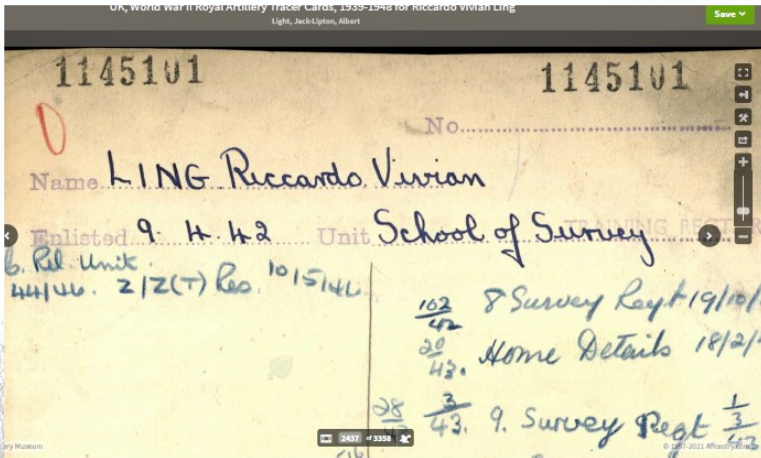 UK, World War II Royal Artillery Tracer Cards, 1939-1948 for Riccardo Vivian Ling
Light, Jack-Lipton, Albert
Save
1145101 1145101
No.
Name LING Riccardo Vivian
Enlisted 9. 4. 42 Unit School of Survey
TRAINING
Rel. Unit
44/46. Z/Z(T) Res. 10/5/46
102/42 8 Survey Regt 19/10/
20/43. Home Details 18/2/
28 3/43. 9. Survey Regt 1/3
2437 of 3358
ery Museum
© 1997-2021 Ancestry.com